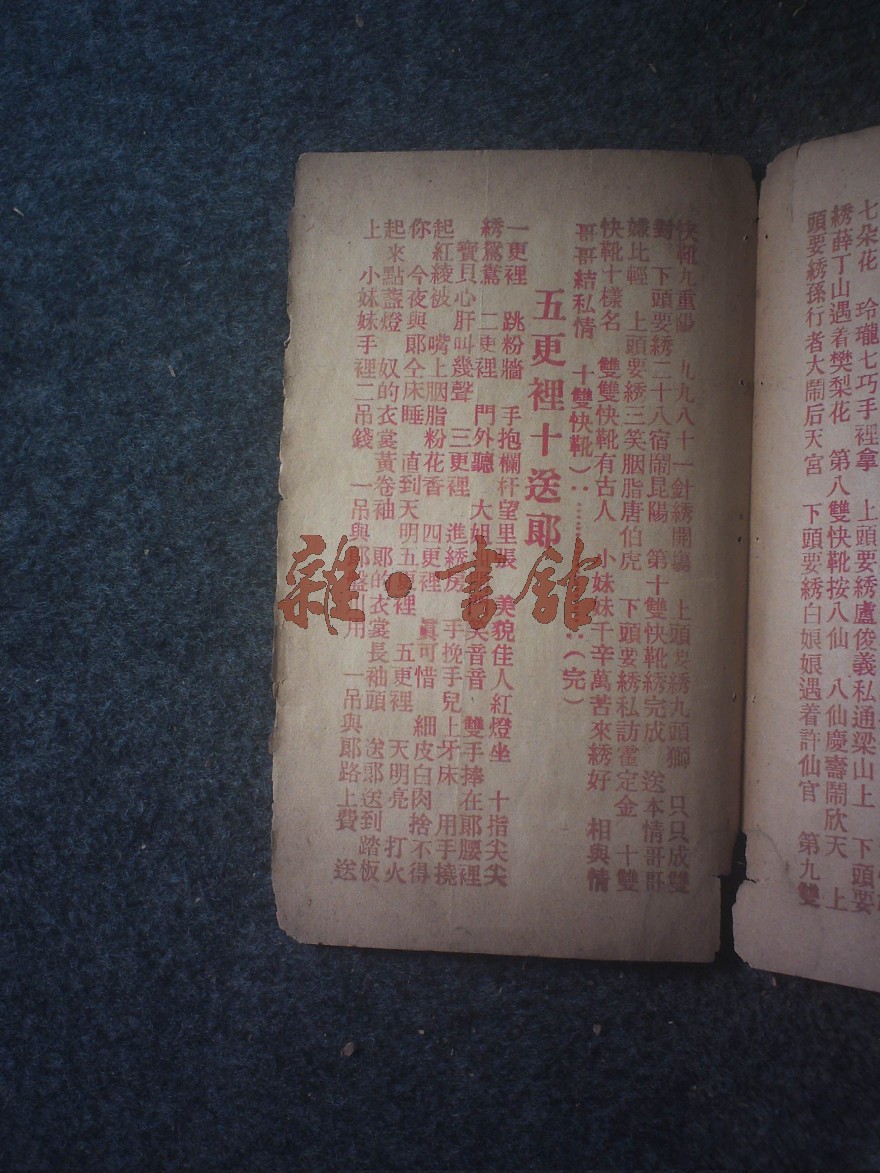 七朵花　玲瓏七巧手裡拿　上頭要綉盧俊義私通梁山上　下頭要
綉薛丁山遇着樊梨花　第八雙快靴按八仙　八仙慶壽鬧欣天　上
頭要綉孫行者大鬧后天宮　下頭要綉白娘娘遇着許仙官　第九雙
快靴九重陽　九九八十一針綉開塲　上頭要綉九頭獅　只只成雙
對　下頭要綉二十八宿鬧昆陽　第十雙快靴綉完成　送本情哥哥
比輕　上頭要綉三笑胭脂唐伯虎　下頭要綉私訪霍定金　十雙
快靴十樣名　雙雙快靴有古人　小妹妹千辛萬苦來綉好　相與情
哥哥結私情（十雙快靴）：……：（完）
五更裡十送郎
一更裡　跳粉牆　手抱欄杆望里張　美貌佳人紅燈坐　十指尖尖
綉鴛鴦　二更裡　門外聽　大姐笑音音　雙手捧在郎腰裡
寶貝心肝叫幾聲　三更裡　進綉房　手挽手兒上牙床　用手撓
起紅綾被　嘴上胭脂粉花香　四更裡　眞可惜　細皮白肉捨不得
你　今夜與郎仝床睡　直到天明五更裡　五更裡　天明亮　打火
起來點盞燈　奴的衣裳黃卷袖　郎的衣裳長袖頭　送郎送到踏板
上　小妹妹手裡二吊錢　一吊與郎盤川用　一吊與郎路上費　送
雜·書舘